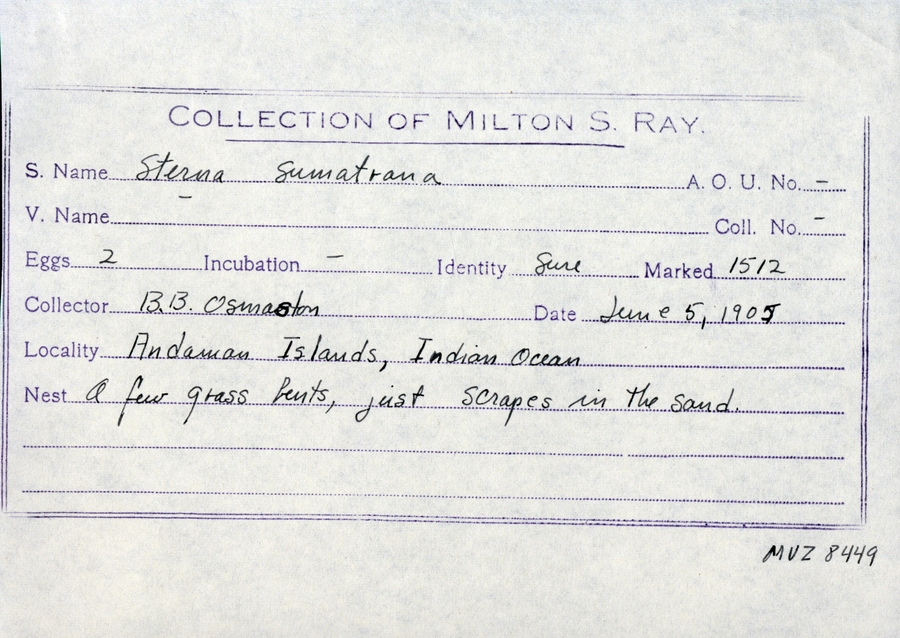 COLLECTION OF MILTON S. RAY.
S. Name Sterna Sumatrana A. O. U. No. -
V. Name - Coll. No. -
Eggs 2 Incubation - Identity Sure Marked 1512
Collector B.B. Osmaston Date June 5, 1905
Locality Andaman Islands, Indian Ocean
Nest A few grass bents, just scrapes in the sand.
MVZ 8449